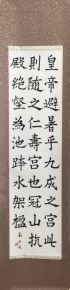 皇帝避暑乎九成之宮此
則隨之仁壽宮也冠山抗
殿絕壑為池跨水架楹